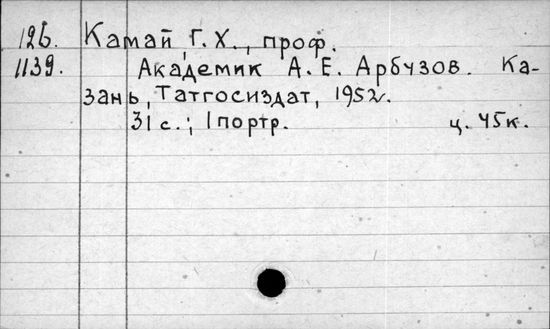 126. Камай, Г. Х., проф.
1139. Академик А. Е. Арбузов. Ка-
зань, Татгосиздат, 1952.
31 с.; 1 портр. ц. 45к.